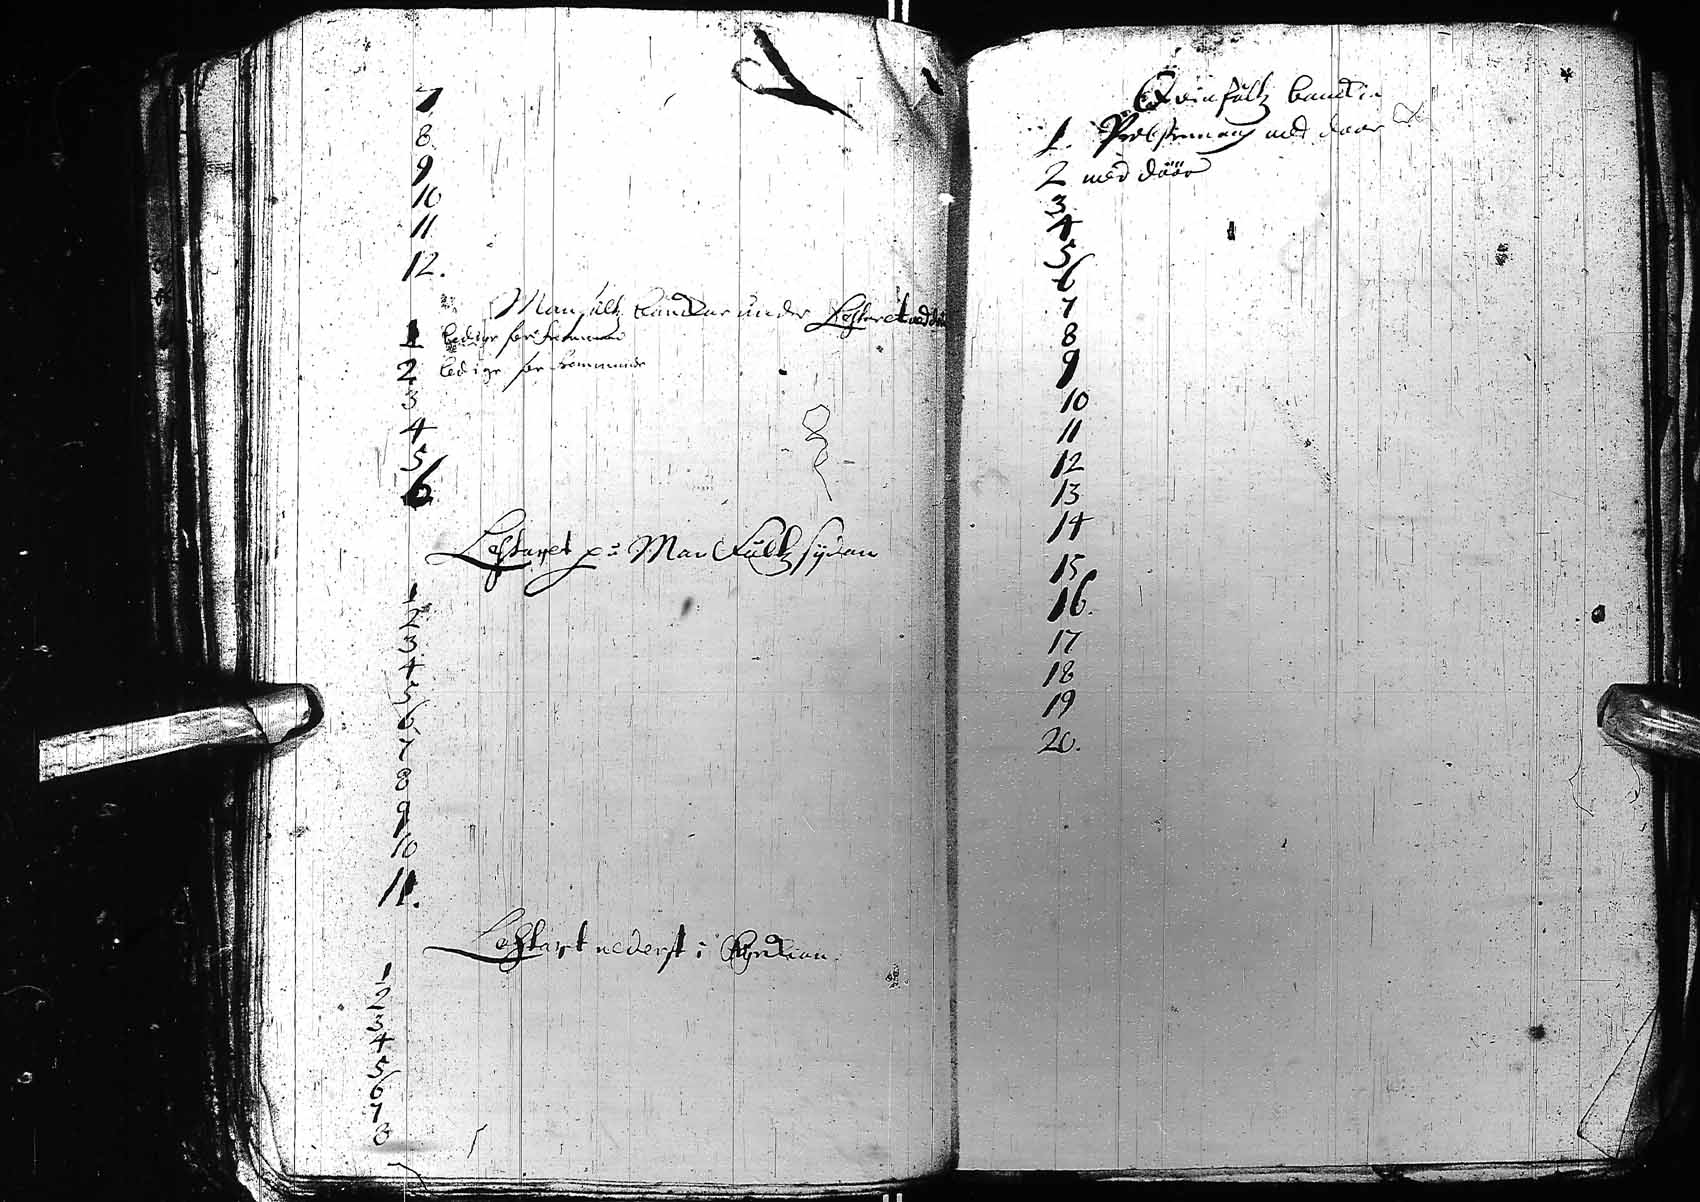 7
8.
9
10
11
12.
Manfultz bänckar under Lächtaret
1 ledige för
2 ledige för
3
4
5
6
Lechtaret på Man Fultz sydan
1
2
3
4
5
6
7
8
9
10
11.
Lechtart nederst i Kyrckian.
1
2
3
4
5
6
7
8
Qvinfultz
1. med döör
2 med döör
3
4
5
6
7
8
9
10
11
12
13
14
15
16.
17
18
19
20.